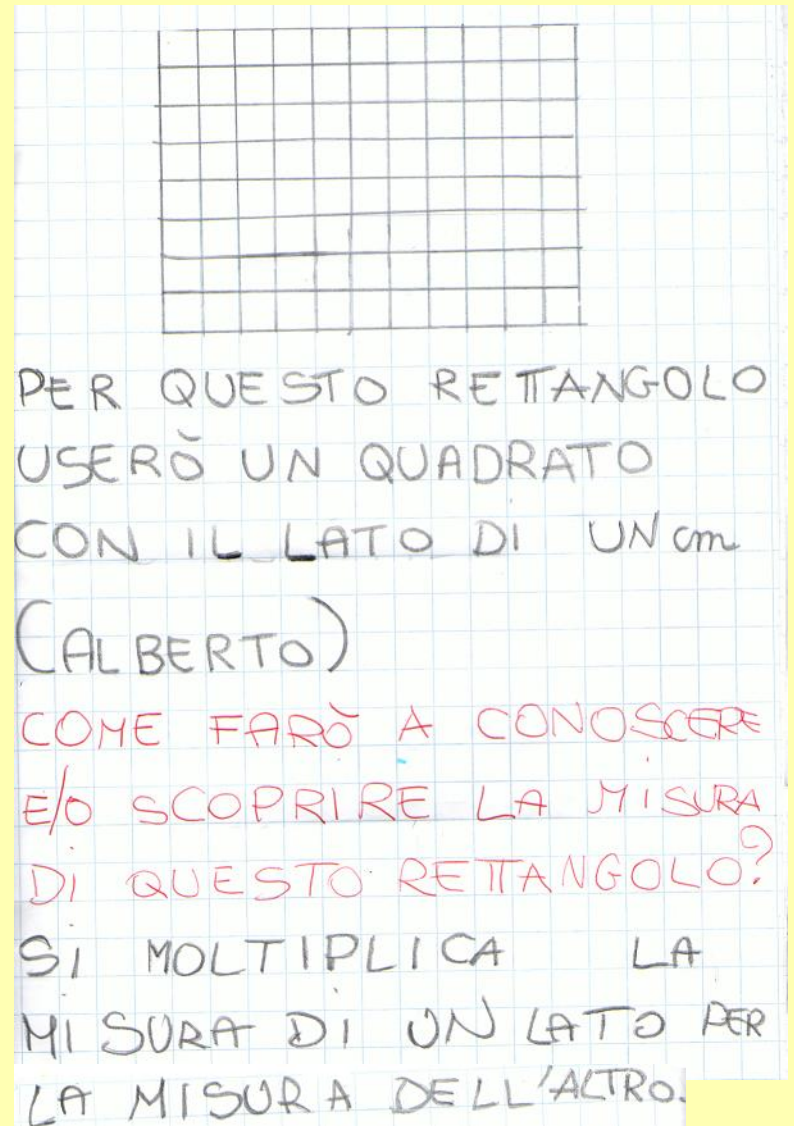 PER QUESTO RETTANGOLO
USERÒ UN QUADRATO
CON IL LATO DI UN cm
(ALBERTO)
COME FARÒ A CONOSCERE
E/O SCOPRIRE LA MISURA
DI QUESTO RETTANGOLO?
SI MOLTIPLICA LA
MISURA DI UN LATO PER
LA MISURA DELL'ALTRO.